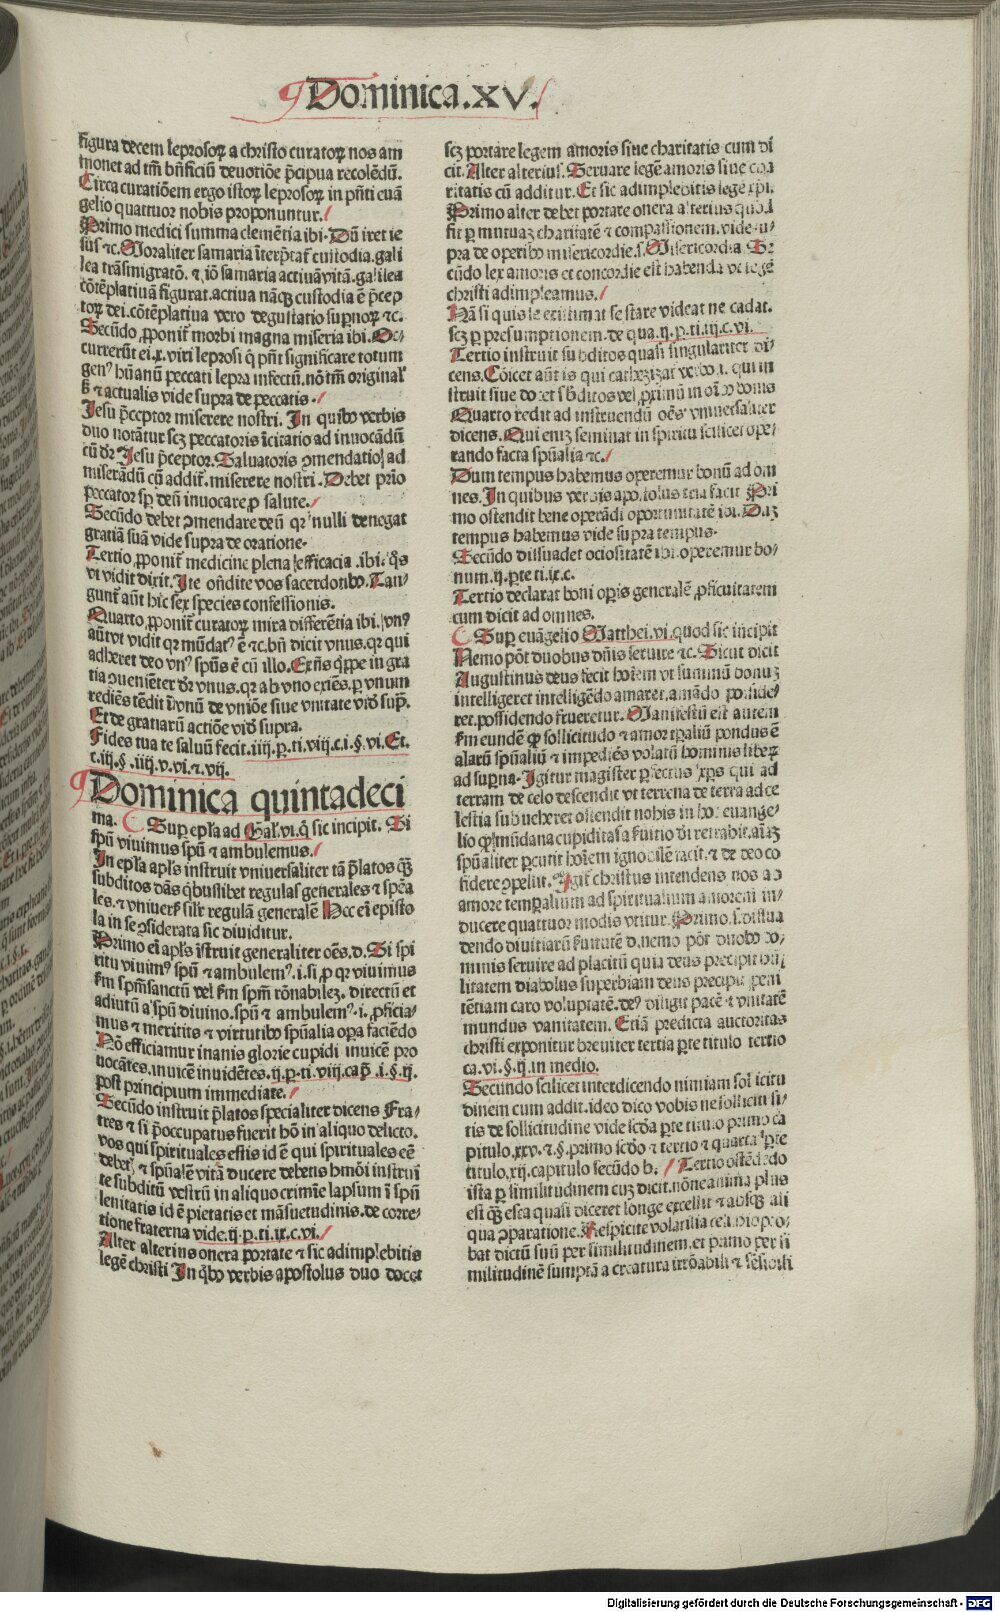 Dominica.xv.
figura decem leprosoꝝ a christo curatoꝝ nos am
monet ad tm̄ bn̄ficiū deuotiōe p̄cipua recolēdū.
Circa curatiōem ergo istoꝝ leprosoꝝ in pn̄ti euā
gelio quattuor nobis proponuntur.
Primo medici summa clementia ibi. Dū iret ie
sus ⁊c. Moraliter samaria īterp̄tat̄ custodia. gali
lea trāsmigratō. ⁊ iō samaria actiuā vitā. galilea
cōtēplatiuā figurat. actiua nāqꝫ custodia ē p̄cep
toꝝ dei. cōtēplatiua vero degustatio supnoꝝ ⁊c.
Secūdo ꝓponit̄ morbi magna miseria ibi. Oc
currerūt ei .x. viri leprosi q̄ pn̄t significare totum
genꝰ hūanū peccati lepra infectū. nō tm̄ original̓
ꝫ ⁊ actualis vide supra de peccatis.
Jesu p̄ceptor miserere nostri. In quibꝰ verbis
duo notātur scꝫ peccatoris īcitatio ad inuocādū
cū dr̄ Jesu p̄ceptor. Saluatoris ꝯmendatio ad
miserādū cū addit̄. miserere nostri. Debet prio
peccator sp̄ deū inuocare ꝓ salute.
Secūdo debet ꝯmendare deū qr nulli denegat
gratiā suā vide supra de oratione.
Tertio ꝓponit̄ medicine plena efficacia. ibi. q̄s
vt vidit dixit. Ite on̄dite vos sacerdotibꝰ. Tan-
gunt̄ aūt hic sex species confessionis.
Quarto ꝓponit̄ curatoꝝ mira differētia ibi. vnꝰ
aūt vt vidit qr mūdatꝰ ē ⁊c. bn̄ dicit vnus. qr qui
adheret deo vnꝰ spūs ē cū illo. Exn̄s q̄ppe in gra
tia ꝯueniēter dr̄ vnus. qr ab vno exiēs. ꝑ vnum
rediēs tēdit ī vnū de vniōe siue vnitate vid̄ sup̄.
Et de gratiarū actiōe vid̄ supra.
Fides tua te saluū fecit. iiij. p. ti. viij. c. i. §. vi. Et.
c. iij. § .iiij. v. vi. ⁊. vij.
Dominica quintadeci
ma. Sup epl̄a ad Gal̄. vi. q̄ sic incipit. Si
spū viuimus spū ⁊ ambulemus.
In epl̄a apl̄s instruit vniuersaliter tā p̄latos qꝫ
subditos dās q̄buslibet regulas generales ⁊ spēa
les. ⁊ vniuers̄ silr̄ regulā generalē Hec eī episto
la in se ꝯsiderata sic diuiditur.
Primo eī apl̄s īstruit generaliter oēs. d. Si spi
ritu viuimꝰ spū ⁊ ambulemꝰ. i. si ꝑ qr viuimus
fm spm̄sanctū vel fm spm̄ rōnabilez. directū et
adiutū a spū diuino. spū ⁊ ambulemꝰ. i. ꝓficia-
mus ⁊ meritis ⁊ virtutibꝰ spūalia opa faciēdo
Nō efficiamur inanis glorie cupidi inuicē pro
uocātes. inuicē inuidētes. ij. p. ti. viij. cap̄. i. §. ij.
post principium immediate.
Secūdo instruit p̄latos specialiter dicens Fra-
tres ⁊ si p̄occupatus fuerit hō in aliquo delicto.
vos qui spirituales estis id ē qui spirituales eē
debetꝭ ⁊ spūalē vitā ducere debetis hmōi instrui
te subditū vestrū in aliquo crimīe lapsum ī spū
lenitatis id ē pietatis et māsuetudinis. de corre-
tione fraterna vide. ij. p. ti. ix. c. vi.
Alter alterius onera portate ⁊ sic adimplebitis
legē christi In q̄bꝰ verbis apostolus duo docet
scꝫ portare legem amoris siue charitatis cum di
cit. Alter alterius. Seruare legē amoris siue cha
ritatis cū additur. Et sic adimplebitis legē xp̄i.
Primo alter debet portare onera alterius quod
fit ꝑ mutuaꝫ charitatē ⁊ compassionem. vide su-
pra de operibꝰ misericordie. s. Misericordia. Se
cūdo lex amoris et concordie est habenda vt legē
christi adimpleamus.
Nā si quis se existimat se stare videat ne cadat.
scꝫ ꝑ presumptionem. de qua. ij. p. ti. iij. c. vi.
Tertio instruit subditos quasi singulariter di-
cens. Cōicet aūt is qui cathezizat̄ verbo. i. qui in
struit̄ siue docet̄ sbditos vel ꝓximū in oībꝰ bonis
Quarto redit ad instruendū oēs vniuersaliter
dicens. Qui enīꝫ seminat in spiritu scilicet ope-
rando facta spūalia ⁊c.
Dum tempus habemus operemur bonū ad om
nes. In quibus verbis apostolus tria facit Pri
mo ostendit bene operādi oportunitatē ibi. Dūꝫ
tempus habemus vide supra tempus.
Secūdo dissuadet ociositatē ibi. operemur bo-
num. ij. pte ti. ix. c.
Tertio declarat boni opis generalē ꝓficuitatem
cum dicit ad omnes.
Sup euāgelio Matthei. vi. quod sic incipit
Nemo pōt duobus dn̄is seruire ⁊c. Sicut dicit
Augustinus deus fecit hoīem vt summū bonuꝫ
intelligeret intelligēdo amaret. amādo posside-
ret. possidendo frueretur. Manifestū est autem
fm eundē ꝙ sollicitudo ⁊ amor tꝑaliū pondus ē
alarū spūaliū ⁊ impediēs volatū hominis liberꝫ
ad supna. Igitur magister pfectus xp̄s qui ad
terram de celo descendit vt terrena de terra ad ce
lestia subueheret ostendit nobis in hoc euange-
lio ꝙ mūdana cupiditas a fuitio dei retrahit. aīaꝫ
spūaliter pcutit hoīem ignobilē facit. ⁊ de deo co
fidere ꝯpellit. Igit̄ christus intendens nos ab
amore tempalium ad spiritualium amorem in-
ducere quattuor modis vtitur. Primo. s. dissua
dendo diuitiarū fuitutē d. nemo pōt duobꝰ do-
minis seruire ad placitū quia deus precipit hui
litatem diabolus superbiam deus precipit peni
tētiam caro voluptatē. deꝰ diligit pacē ⁊ vnitatē
mundus vanitatem. Etiā predicta auctoritas
christi exponitur breuiter tertia pte titulo tertio
ca. vi. §. ij. in medio.
Secundo scilicet interdicendo nimiam sollicitu
dinem cum addit. ideo dico vobis ne solliciti si-
tis de sollicitudine vide scd̄a pte titulo primo ca
pitulo. xxv. ⁊ §. primo scd̄o ⁊ tertio ⁊ quarta pte
titulo. xij. capitulo secūdo b. Tertio ostēdēdo
ista ꝑ similitudinem cuꝫ dicit. nōne anima plus
est qꝫ esca quasi diceret longe excellit ⁊ absqꝫ ali
qua ꝯparatione. Respicite volatilia celi hic pro-
bat dictū suū per similitudinem. et primo per si
militudinē sumptā a creatura irrōabili ⁊ sēsibili
Digitalisierung gefördert durch die Deutsche Forschungsgemeinschaft - DFG